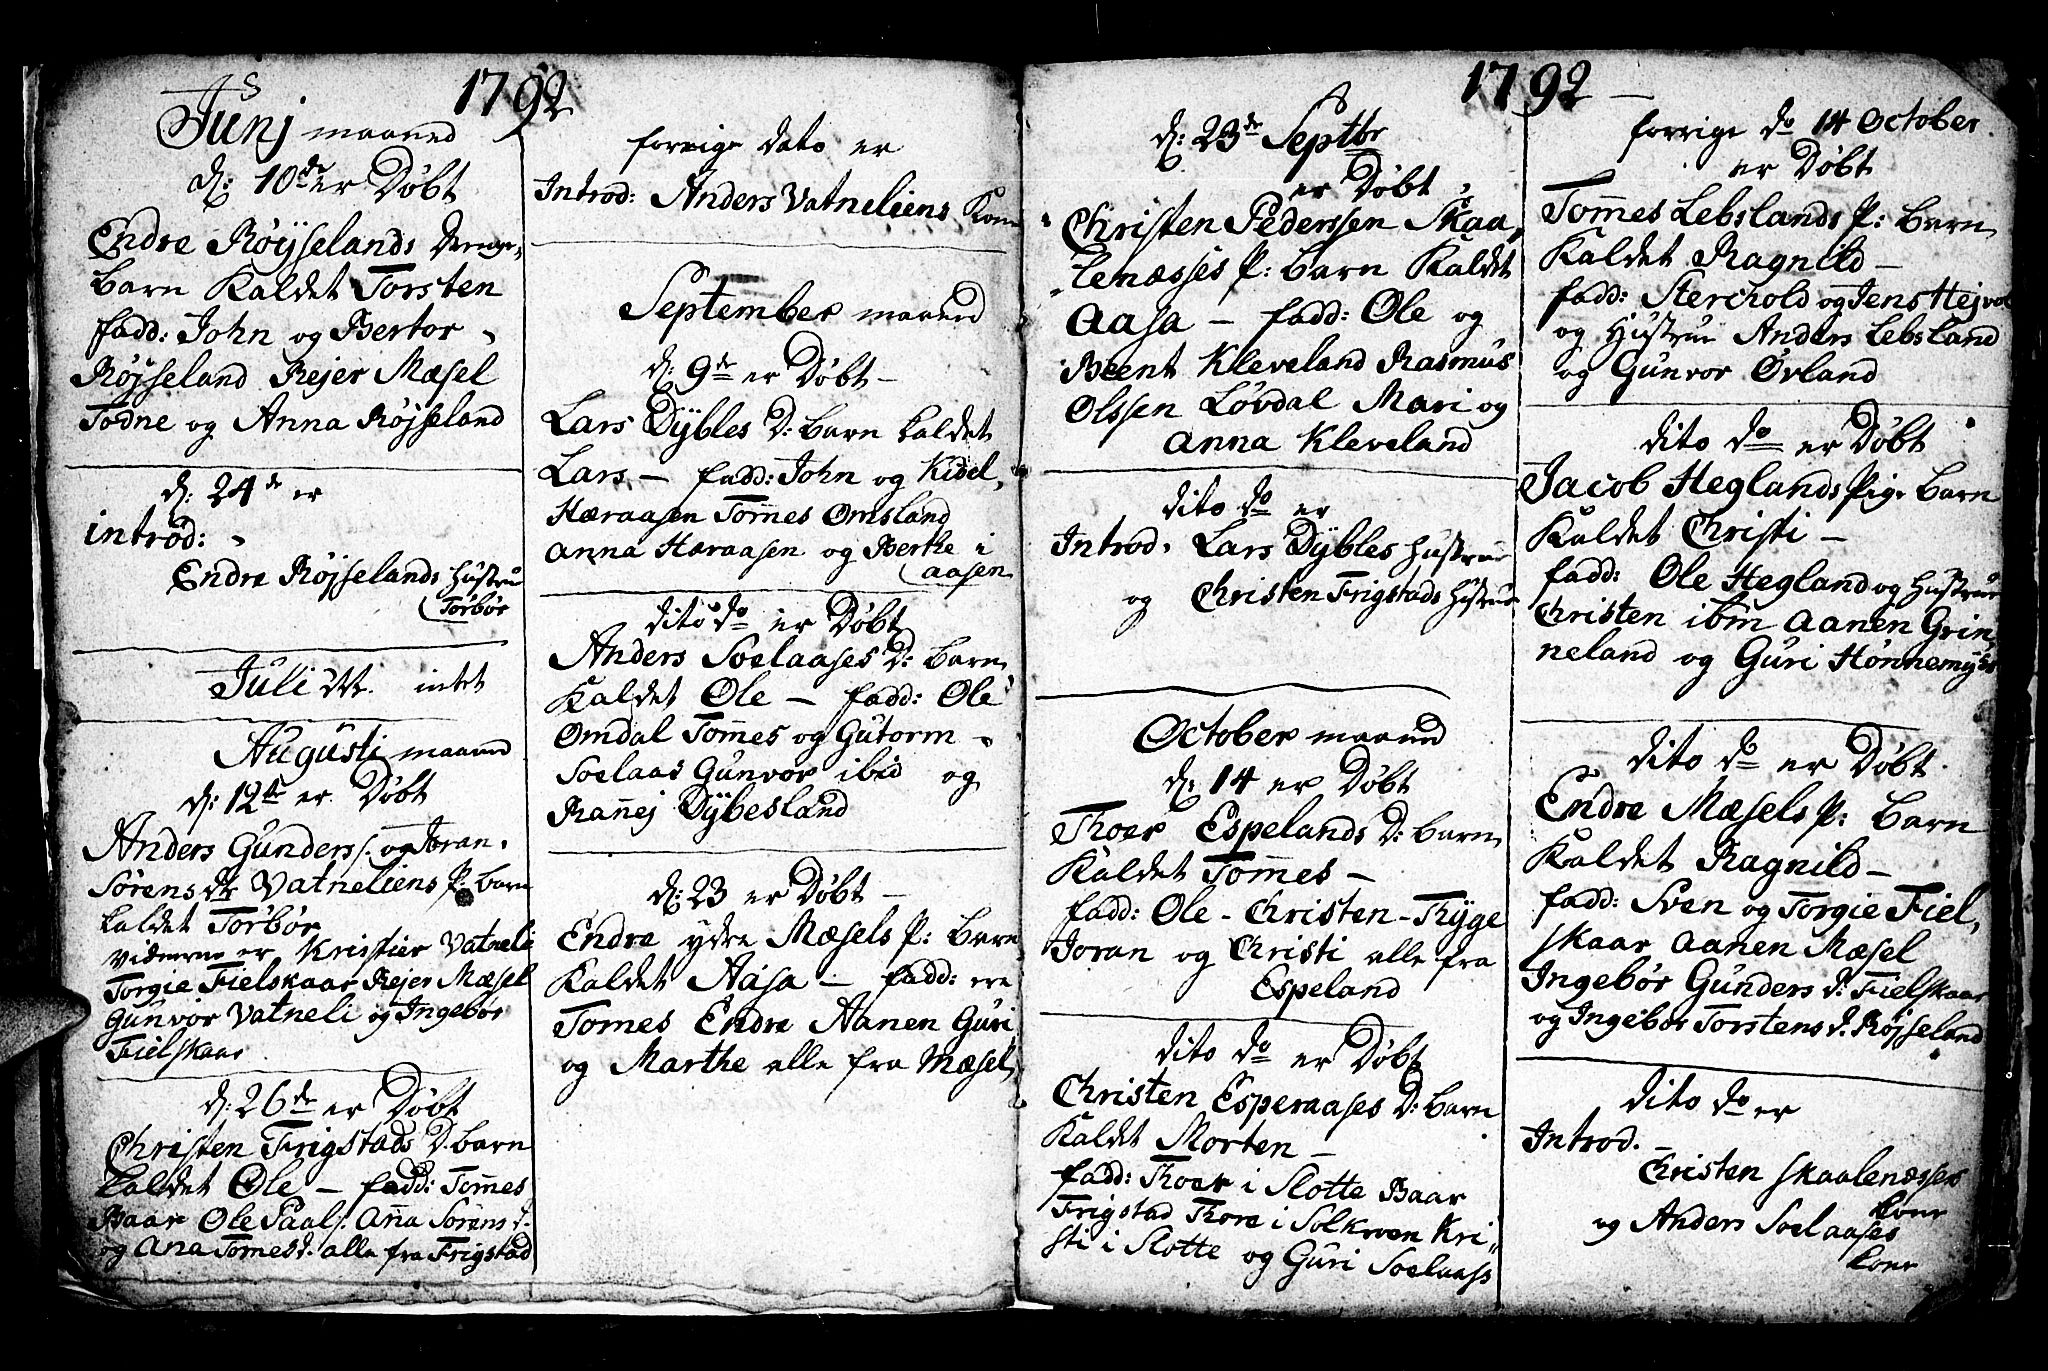 1792
Junj maaned
d: 10de er Døbt
Endre Røijselands drenge-
Barn Kaldet Torsten
fadd: John og Bertor
Røjseland Rejer Mæsel
Todne og Anna Røjseland
d: 24de er
introd:
Endre Røjselands Hustru
Torbør
Juli M. intet
Augusti maaned
d: 12te er Døbt
Anders Gunders. og Joran
Sørens dr Vatneliens P: barn
kaldet Torbør
vidnerne er Kristier Vatneli
Torgie Fielskaar Rejer Mæsel
Gunvor Vatneli og Ingebør
Fielskaar
d: 26de er Døbt
Christen Frigstads D: barn
kaldet Ole — fadd: Tom̄es
Baar Ole Paals. An̄a Sørens d.
og Ana Tomes d. alle fra Frigstad
forrige dato er
Introd: Anders Vatneliens Kone
September maaned
d: 9de er Døbt —
Lars Dybles D: barn kaldet
Lars — fadd: John og Kidel
Haraasen Tom̄es Omsland
Anna Haraasen og Berthe i
aasen
dito do er Døbt
Anders Soelaases D: barn
Kaldet Ole — fadd: Ole
Omdal Tom̄es og Gutorm
Soelaas Gunvor ibid og
Ran̄ej Dybesland
d: 23 er Døbt —
Endre ydre Mæsels P: barn
Kaldet Aasa — fadd: ere
Tomes Endre Aanen Guri
og Marthe alle fra Mæsel
1792 —
d: 23de Septbr
er Døbt
Christen Pederssen Skaa-
lenæsses P: barn Kaldet
Aasa — fadd: Ole og
Beent Kleveland Rasmus
Olssen Løvdal Mari og
Anna Kleveland
dito do er
Introd. Lars Dybles Hustrue
og Christen Frigstads Hustrue
October maaned
d: 14 er Døbt
Thoer Espelands D: barn
Kaldet Tom̄es —
fadd: Ole - Christen - Thyge
Joran og Christi alle fra
Espeland
dito do er Døbt
Christen Esperaases D: barn
Kaldet Morten —
fadd: Thoer i Slotte Baar
Frigstad Thore i Solkroen Kri-
sti i Slotte og Guri Soelaass
forrige do 14 October
er Døbt
Tom̄es Lebslands P: barn
Kaldet Ragnild —
fadd: Sterchold og Jens
og Hustrue Anders Lebsland
og Gunvor Øvland
dito do er Døbt
Jacob Heglands Pige barn
Kaldet Christi —
fadd: Ole Hegland og Hustrue
Christen ibm Aanen Grin-
neland og Guri Hønnemyhr
dito do er Døbt
Endre Mæsels P: Barn
Kaldet Ragnild —
fadd: Sven og Torgie Fiel-
skaar Aanen Mæsel
Ingebør Gunders d. Fielskaar
og Ingebor Torstens d. Røjseland
dito do er
Introd. —
Christen Skaalenæsses
kone
og Anders Soelaases
kone